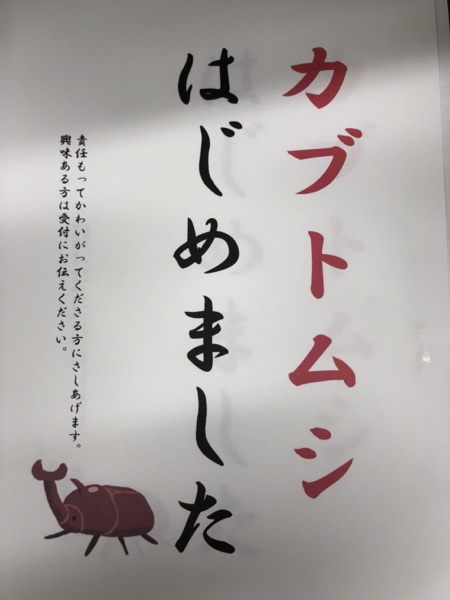 カブトムシ
はじめました
責任もってかわいがってくださる方にさしあげます。
興味ある方は受付にお伝えください。